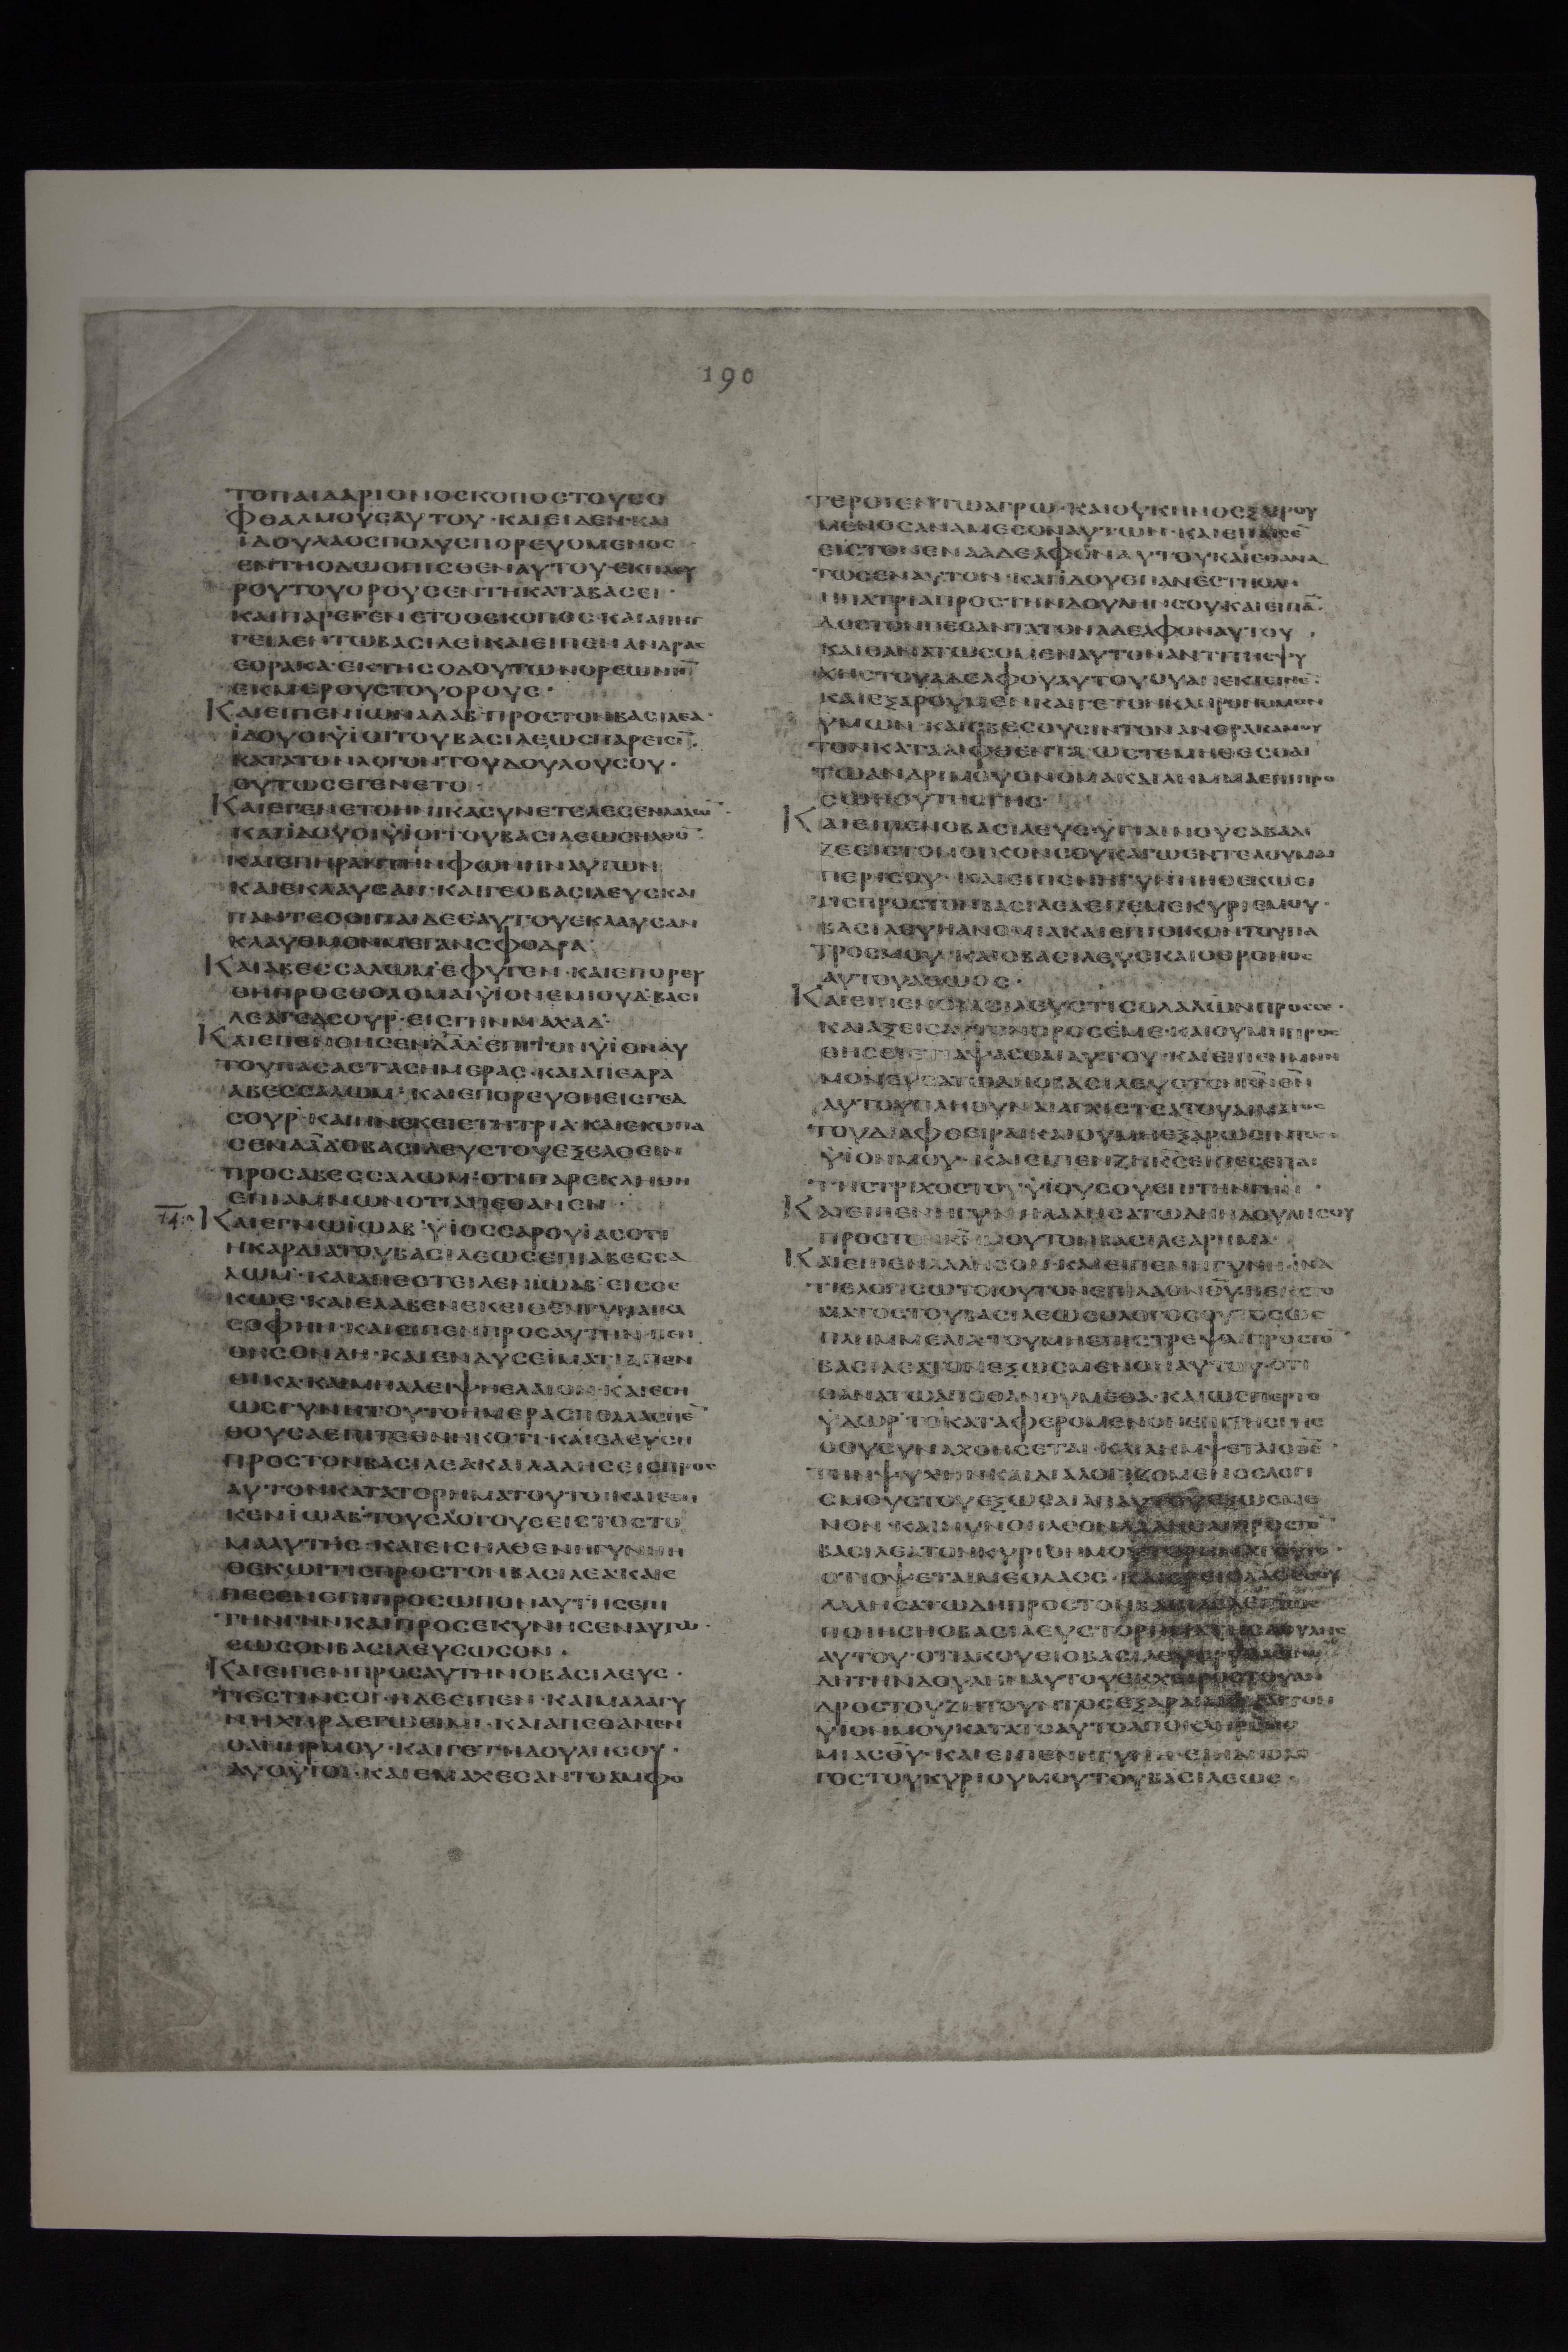 190
ΤΟΠΑΙΔΑΡΙΟΝΟΣΚΟΠΟΣΤΟΥΣΟ
ΦΘΑΛΜΟΥΣΑΥΤΟΥ·ΚΑΙΕΙΔΕΝ·ΚΑΙ
ΙΔΟΥΛΑΟΣΠΟΛΥΣΠΟΡΕΥΟΜΕΝΟΣ
ΕΝΤΗΟΔΩΟΠΙΣΘΕΝΑΥΤΟΥ·ΕΚΠΛΕΥ
ΡΟΥΤΟΥΟΡΟΥΣΕΝΤΗΚΑΤΑΒΑΣΕΙ·
ΚΑΙΠΑΡΕΓΕΝΕΤΟΟΣΚΟΠΟΣ·ΚΑΙΑΠΗΓ
ΓΕΙΛΕΝΤΩΒΑΣΙΛΕΙΚΑΙΕΙΠΕΝΑΝΔΡΑΣ
ΕΟΡΑΚΑ·ΕΚΤΗΣΟΔΟΥΤΩΝΟΡΕΩΝΗ̅
ΕΚΜΕΡΟΥΣΤΟΥΟΡΟΥΣ·
ΚΑΙΕΙΠΕΝΙΩΝΑΔΑΒ ΠΡΟΣΤΟΝΒΑΣΙΛΕΑ·
ΙΔΟΥΟΙΥΙΟΙΤΟΥΒΑΣΙΛΕΩΣΠΑΡΕΙΣΙ̅·
ΚΑΤΑΤΟΝΛΟΓΟΝΤΟΥΔΟΥΛΟΥΣΟΥ·
ΟΥΤΩΣΕΓΕΝΕΤΟ·
ΚΑΙΕΓΕΝΕΤΟΗΝΙΚΑΣΥΝΕΤΕΛΕΣΕΝΛΑΛΩ̅·
ΚΑΙΙΔΟΥΟΙΥΙΟΙΤΟΥΒΑΣΙΛΕΩΣΗΛΘΟ̅·
ΚΑΙΕΠΗΡΑΝΤΗΝΦΩΝΗΝΑΥΤΩΝ
ΚΑΙΕΚΛΑΥΣΑΝ·ΚΑΙΓΕΟΒΑΣΙΛΕΥΣΚΑΙ
ΠΑΝΤΕΣΟΙΠΑΙΔΕΣΑΥΤΟΥΕΚΛΑΥΣΑΝ
ΚΛΑΥΘΜΟΝΜΕΓΑΝΣΦΟΔΡΑ·
ΚΑΙΑΒΕΣΣΑΛΩΜ ΕΦΥΓΕΝ·ΚΑΙΕΠΟΡΕΥ
ΘΗΠΡΟΣΘΟΛΟΜΑΙΥΙΟΝΕΜΙΟΥΔ·ΒΑΣΙ
ΛΕΑΓΕΔΣΟΥΡ·ΕΙΣΓΗΝΜΑΧΑΔ·
ΚΑΙΕΠΕΝΘΗΣΕΝΔΑ̅Δ̅ΕΠΙΤΟΝΥΙΟΝΑΥ
ΤΟΥΠΑΣΑΣΤΑΣΗΜΕΡΑΣ·ΚΑΙΑΠΕΔΡΑ
ΑΒΕΣΣΑΛΩΜ·ΚΑΙΕΠΟΡΕΥΘΗΕΙΣΓΕΔ
ΣΟΥΡ·ΚΑΙΗΝΕΚΕΙΕΤΗΤΡΙΑ·ΚΑΙΕΚΟΠΑ
ΣΕΝΔΑ̅Δ̅ΟΒΑΣΙΛΕΥΣΤΟΥΕΞΕΛΘΕΙΝ
ΠΡΟΣΑΒΕΣΣΑΛΩΜ·ΟΤΙΠΑΡΕΚΛΗΘΗ
ΕΠΙΑΜΝΩΝΟΤΙΑΠΕΘΑΝΕΝ·
ΚΑΙΕΓΝΩΙΩΑΒ ΥΙΟΣΣΑΡΟΥΙΑΣΟΤΙ
ΗΚΑΡΔΙΑΤΟΥΒΑΣΙΛΕΩΣΕΠΙΑΒΕΣΣΑ
ΛΩΜ·ΚΑΙΑΠΕΣΤΕΙΛΕΝΙΩΑΒ ΕΙΣΘΕ
ΚΩΕ·ΚΑΙΕΛΑΒΕΝΕΚΕΙΘΕΝΓΥΝΑΙΚΑ
ΣΟΦΗΝ·ΚΑΙΕΙΠΕΝΠΡΟΣΑΥΤΗΝ·ΠΕΝ
ΘΗΣΟΝΔΗ·ΚΑΙΕΝΔΥΣΕΙΜΑΤΙΑΠΕΝ
ΘΙΚΑ·ΚΑΙΜΗΑΛΕΙΨΗΕΛΑΙΟΝ·ΚΑΙΕΣΗ
ΩΣΓΥΝΗΤΟΥΤΟΗΜΕΡΑΣΠΟΛΛΑΣΠΕ̅
ΘΟΥΣΑΕΠΙΤΕΘΝΗΚΟΤΙ·ΚΑΙΕΛΕΥΣΗ
ΠΡΟΣΤΟΝΒΑΣΙΛΕΑΚΑΙΛΑΛΗΣΕΙΣΠΡΟΣ
ΑΥΤΟΝΚΑΤΑΤΟΡΗΜΑΤΟΥΤΟ·ΚΑΙΕΘΗ
ΚΕΝΙΩΑΒ ΤΟΥΣΛΟΓΟΥΣΕΙΣΤΟΣΤΟ
ΜΑΑΥΤΗΣ·ΚΑΙΕΙΣΗΛΘΕΝΗΓΥΝΗΗ
ΘΕΚΩΙΤΙΣΠΡΟΣΤΟΝΒΑΣΙΛΕΑ·ΚΑΙΕ
ΠΕΣΕΝΕΠΙΠΡΟΣΩΠΟΝΑΥΤΗΣΕΠΙ
ΤΗΝΓΗΝΚΑΙΠΡΟΣΕΚΥΝΗΣΕΝΑΥΤΩ·
ΣΩΣΟΝΒΑΣΙΛΕΥΣΩΣΟΝ·
ΚΑΙΕΙΠΕΝΠΡΟΣΑΥΤΗΝΟΒΑΣΙΛΕΥΣ·
ΤΙΕΣΤΙΝΣΟΙ·ΗΔΕΕΙΠΕΝ·ΚΑΙΜΑΛΑΓΥ
ΝΗΧΗΡΑΕΓΩΕΙΜΙ·ΚΑΙΑΠΕΘΑΝΕΝ
ΟΑΝΗΡΜΟΥ·ΚΑΙΓΕΤΗΔΟΥΛΗΣΟΥ·
ΔΥΟΥΙΟΙ·ΚΑΙΕΜΑΧΕΣΑΝΤΟΑΜΦΟ
ΤΕΡΟΙΕΝΤΩΑΓΡΩ·ΚΑΙΟΥΚΗΝΟΕΞΑΙΡΟΥ
ΜΕΝΟΣΑΝΑΜΕΣΟΝΑΥΤΩΝ·ΚΑΙΕΠΑΙΣΕ̅
ΕΙΣΤΟΝΕΝΑΑΔΕΛΦΟΝΑΥΤΟΥΚΑΙΕΘΑΝΑ
ΤΩΣΕΝΑΥΤΟΝ·ΚΑΙΙΔΟΥΕΠΑΝΕΣΤΗΟΛΗ
ΗΠΑΤΡΙΑΠΡΟΣΤΗΝΔΟΥΛΗΝΣΟΥΚΑΙΕΙΠΑ̅·
ΔΟΣΤΟΝΠΕΣΑΝΤΑΤΟΝΑΔΕΛΦΟΝΑΥΤΟΥ
ΚΑΙΘΑΝΑΤΩΣΟΜΕΝΑΥΤΟΝΑΝΤΙΤΗΣΨΥ
ΧΗΣΤΟΥΑΔΕΛΦΟΥΑΥΤΟΥΟΥΑΠΕΚΤΕΙΝΕ̅·
ΚΑΙΕΞΑΡΟΥΜΕΝΚΑΙΓΕΤΟΝΚΛΗΡΟΝΟΜΟΝ
ΥΜΩΝ·ΚΑΙΣΒΕΣΟΥΣΙΝΤΟΝΑΝΘΡΑΚΑΜΟΥ
ΤΟΝΚΑΤΑΛΙΦΘΕΝΤΑΩΣΤΕΜΗΘΕΣΘΑΙ
ΤΩΑΝΔΡΙΜΟΥΟΝΟΜΑΚΑΙΛΗΜΜΑΕΠΙΠΡΟ
ΣΩΠΟΥΤΗΣΓΗΣ·
ΚΑΙΕΙΠΕΝΟΒΑΣΙΛΕΥΣ·ΥΓΙΑΙΝΟΥΣΑΒΑΔΙ
ΖΕΕΙΣΤΟΝΟΙΚΟΝΣΟΥΚΑΓΩΕΝΤΕΛΟΥΜΑΙ
ΠΕΡΙΣΟΥ·ΚΑΙΕΙΠΕΝΗΓΥΝΗΗΘΕΚΩΕΙ
ΤΙΣΠΡΟΣΤΟΝΒΑΣΙΛΕΑΕΠΕΜΕΚΥΡΙΕΜΟΥ·
ΒΑΣΙΛΕΥΗΑΝΟΜΙΑΚΑΙΕΠΙΤΟΝΟΙΚΟΝΤΟΥΠΑ
ΤΡΟΣΜΟΥ·ΚΑΙΟΒΑΣΙΛΕΥΣΚΑΙΟΘΡΟΝΟΣ
ΑΥΤΟΥΑΘΩΟΣ·
ΚΑΙΕΙΠΕΝΟΒΑΣΙΛΕΥΣΤΙΣΟΛΑΛΩΝΠΡΟΣΣΕ·
ΚΑΙΑΞΕΙΣΑΥΤΟΝΠΡΟΣΕΜΕ·ΚΑΙΟΥΜΗΠΡΟΣ
ΘΗΣΕΙΕΤΙΑΨΑΣΘΑΙΑΥΤΟΥ·ΚΑΙΕΙΠΕΝΜΝΗ
ΜΟΝΕΥΣΑΤΩΔΗΟΒΑΣΙΛΕΥΣΤΟΝΚ̅Ν̅Θ̅Ν̅
ΑΥΤΟΥΠΛΗΘΥΝΑΙΑΓΧΙΣΤΕΑΤΟΥΑΙΜΑΤΟΣ
ΤΟΥΔΙΑΦΘΕΙΡΑΙΚΑΙΟΥΜΗΕΞΑΡΩΣΙΝΤΟΝ
ΥΙΟΝΜΟΥ·ΚΑΙΕΙΠΕΝΖΗΚ̅Σ̅ΕΙΠΕΣΕΙΤΑΙ
ΤΗΣΤΡΙΧΟΣΤΟΥΥΙΟΥΣΟΥΕΠΙΤΗΝΓΗΝ·
ΚΑΙΕΙΠΕΝΗΓΥΝΗΛΑΛΗΣΑΤΩΔΗΗΔΟΥΛΗΣΟΥ
ΠΡΟΣΤΟΝΚ̅Ν̅ΜΟΥΤΟΝΒΑΣΙΛΕΑΡΗΜΑ·
ΚΑΙΕΙΠΕΝΛΑΛΗΣΟΝ·ΚΑΙΕΙΠΕΝΗΓΥΝΗ·ΙΝΑ
ΤΙΕΛΟΓΙΣΩΤΟΙΟΥΤΟΝΕΠΙΛΑΟΝΘ̅Υ̅·ΗΕΚΣΤΟ
ΜΑΤΟΣΤΟΥΒΑΣΙΛΕΩΣΟΛΟΓΟΣΟΥΤΟΣΩΣ
ΠΛΗΜΜΕΛΙΑΤΟΥΜΗΕΠΙΣΤΡΕΨΑΙΠΡΟΣΤΟ̅
ΒΑΣΙΛΕΑΤΟΝΕΞΩΣΜΕΝΟΝΑΥΤΟΥ·ΟΤΙ
ΘΑΝΑΤΩΑΠΟΘΑΝΟΥΜΕΘΑ·ΚΑΙΩΣΠΕΡΤΟ
ΥΔΩΡ ΤΟΚΑΤΑΦΕΡΟΜΕΝΟΝΕΠΙΤΗΣΓΗΣ
ΟΟΥΣΥΝΑΧΘΗΣΕΤΑΙ·ΚΑΙΛΗΜΨΕΤΑΙΟΘ̅Σ̅
ΤΗΝΨΥΧΗΝΚΑΙΔΙΑΛΟΓΙΖΟΜΕΝΟΣΛΟΓΙ
ΣΜΟΥΣΤΟΥΕΞΩΣΑΙΑΠΑΥΤΟΥΕΞΩΣΜΕ
ΝΟΝ·ΚΑΙΝΥΝΟΗΛΘΟΝΛΑΛΗΣΑΙΠΡΟΣΤΟ̅
ΒΑΣΙΛΕΑΤΟΝΚΥΡΙΟΝΜΟΥΤΟΡΗΜΑΤΟΥΤΟ·
ΟΤΙΟΨΕΤΑΙΜΕΟΛΑΟΣ·
ΛΑΛΗΣΑΤΩΔΗΠΡΟΣΤΟΝΒΑΣΙΛΕΑ
ΠΟΙΗΣΗΟΒΑΣΙΛΕΥΣΤΟΡΗΜΑΤΗΣΔΟΥΛΗΣ
ΑΥΤΟΥ·ΟΤΙΑΚΟΥΕΙΟΒΑΣΙΛΕΥΣ
ΔΗΤΗΝΔΟΥΛΗΝΑΥΤΟΥΕΚΧΕΙΡΟΣΤΟΥΑΝ
ΔΡΟΣΤΟΥΖΗΤΟΥΝΤΟΣΕΞΑΡΑΙ
ΥΙΟΝΜΟΥΚΑΤΑΤΟΑΥΤΟΑΠΟΚΛΗΡΟΝΟ
ΜΙΑΣΘ̅Υ̅·ΚΑΙΕΙΠΕΝΗΓΥΝΗ·ΕΙΗΔΗΟΛΟ
ΓΟΣΤΟΥΚΥΡΙΟΥΜΟΥΤΟΥΒΑΣΙΛΕΩΣ·